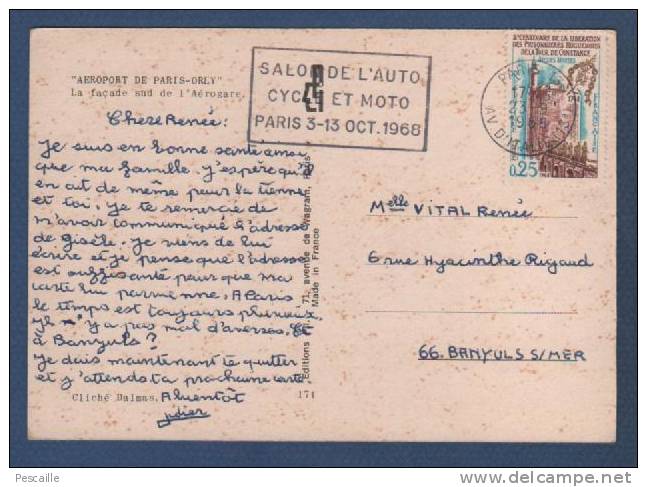 "AEROPORT DE PARIS-ORLY"
La façade sud de l'Aérogare.
SALON DE L'AUTO
CYCLE ET MOTO
PARIS 3-13 OCT. 1968
2e CENTENAIRE DE LA LIBERATION
DES PRISONNIERES HUGUENOTES
DE LA TOUR DE CONSTANCE
AIGUES-MORTES
0,25
Chère Renée:
Je suis en bonne santé ainsi
que ma famille. J'espère qu'il
en ait de même pour la tienne
et toi. Je te remercie de
m'avoir communiqué l'adresse
de Gisèle. Je viens de lui
écrire et je pense que l'adresse
est suffisante pour que ma
carte lui parvienne. A Paris
le temps est toujours pluvieux,
il y a pas mal d'averses. Et
à Banyuls?
Je dois maintenant te quitter
et j'attends ta prochaine carte.
A bientôt
Cliché Dalmas.
171
71, avenue de Wagram, Paris
Made in France
Melle VITAL Renée
6 rue Hyacinthe Rigaud
66. BANYULS S/MER
Pescaille
delcampe.net